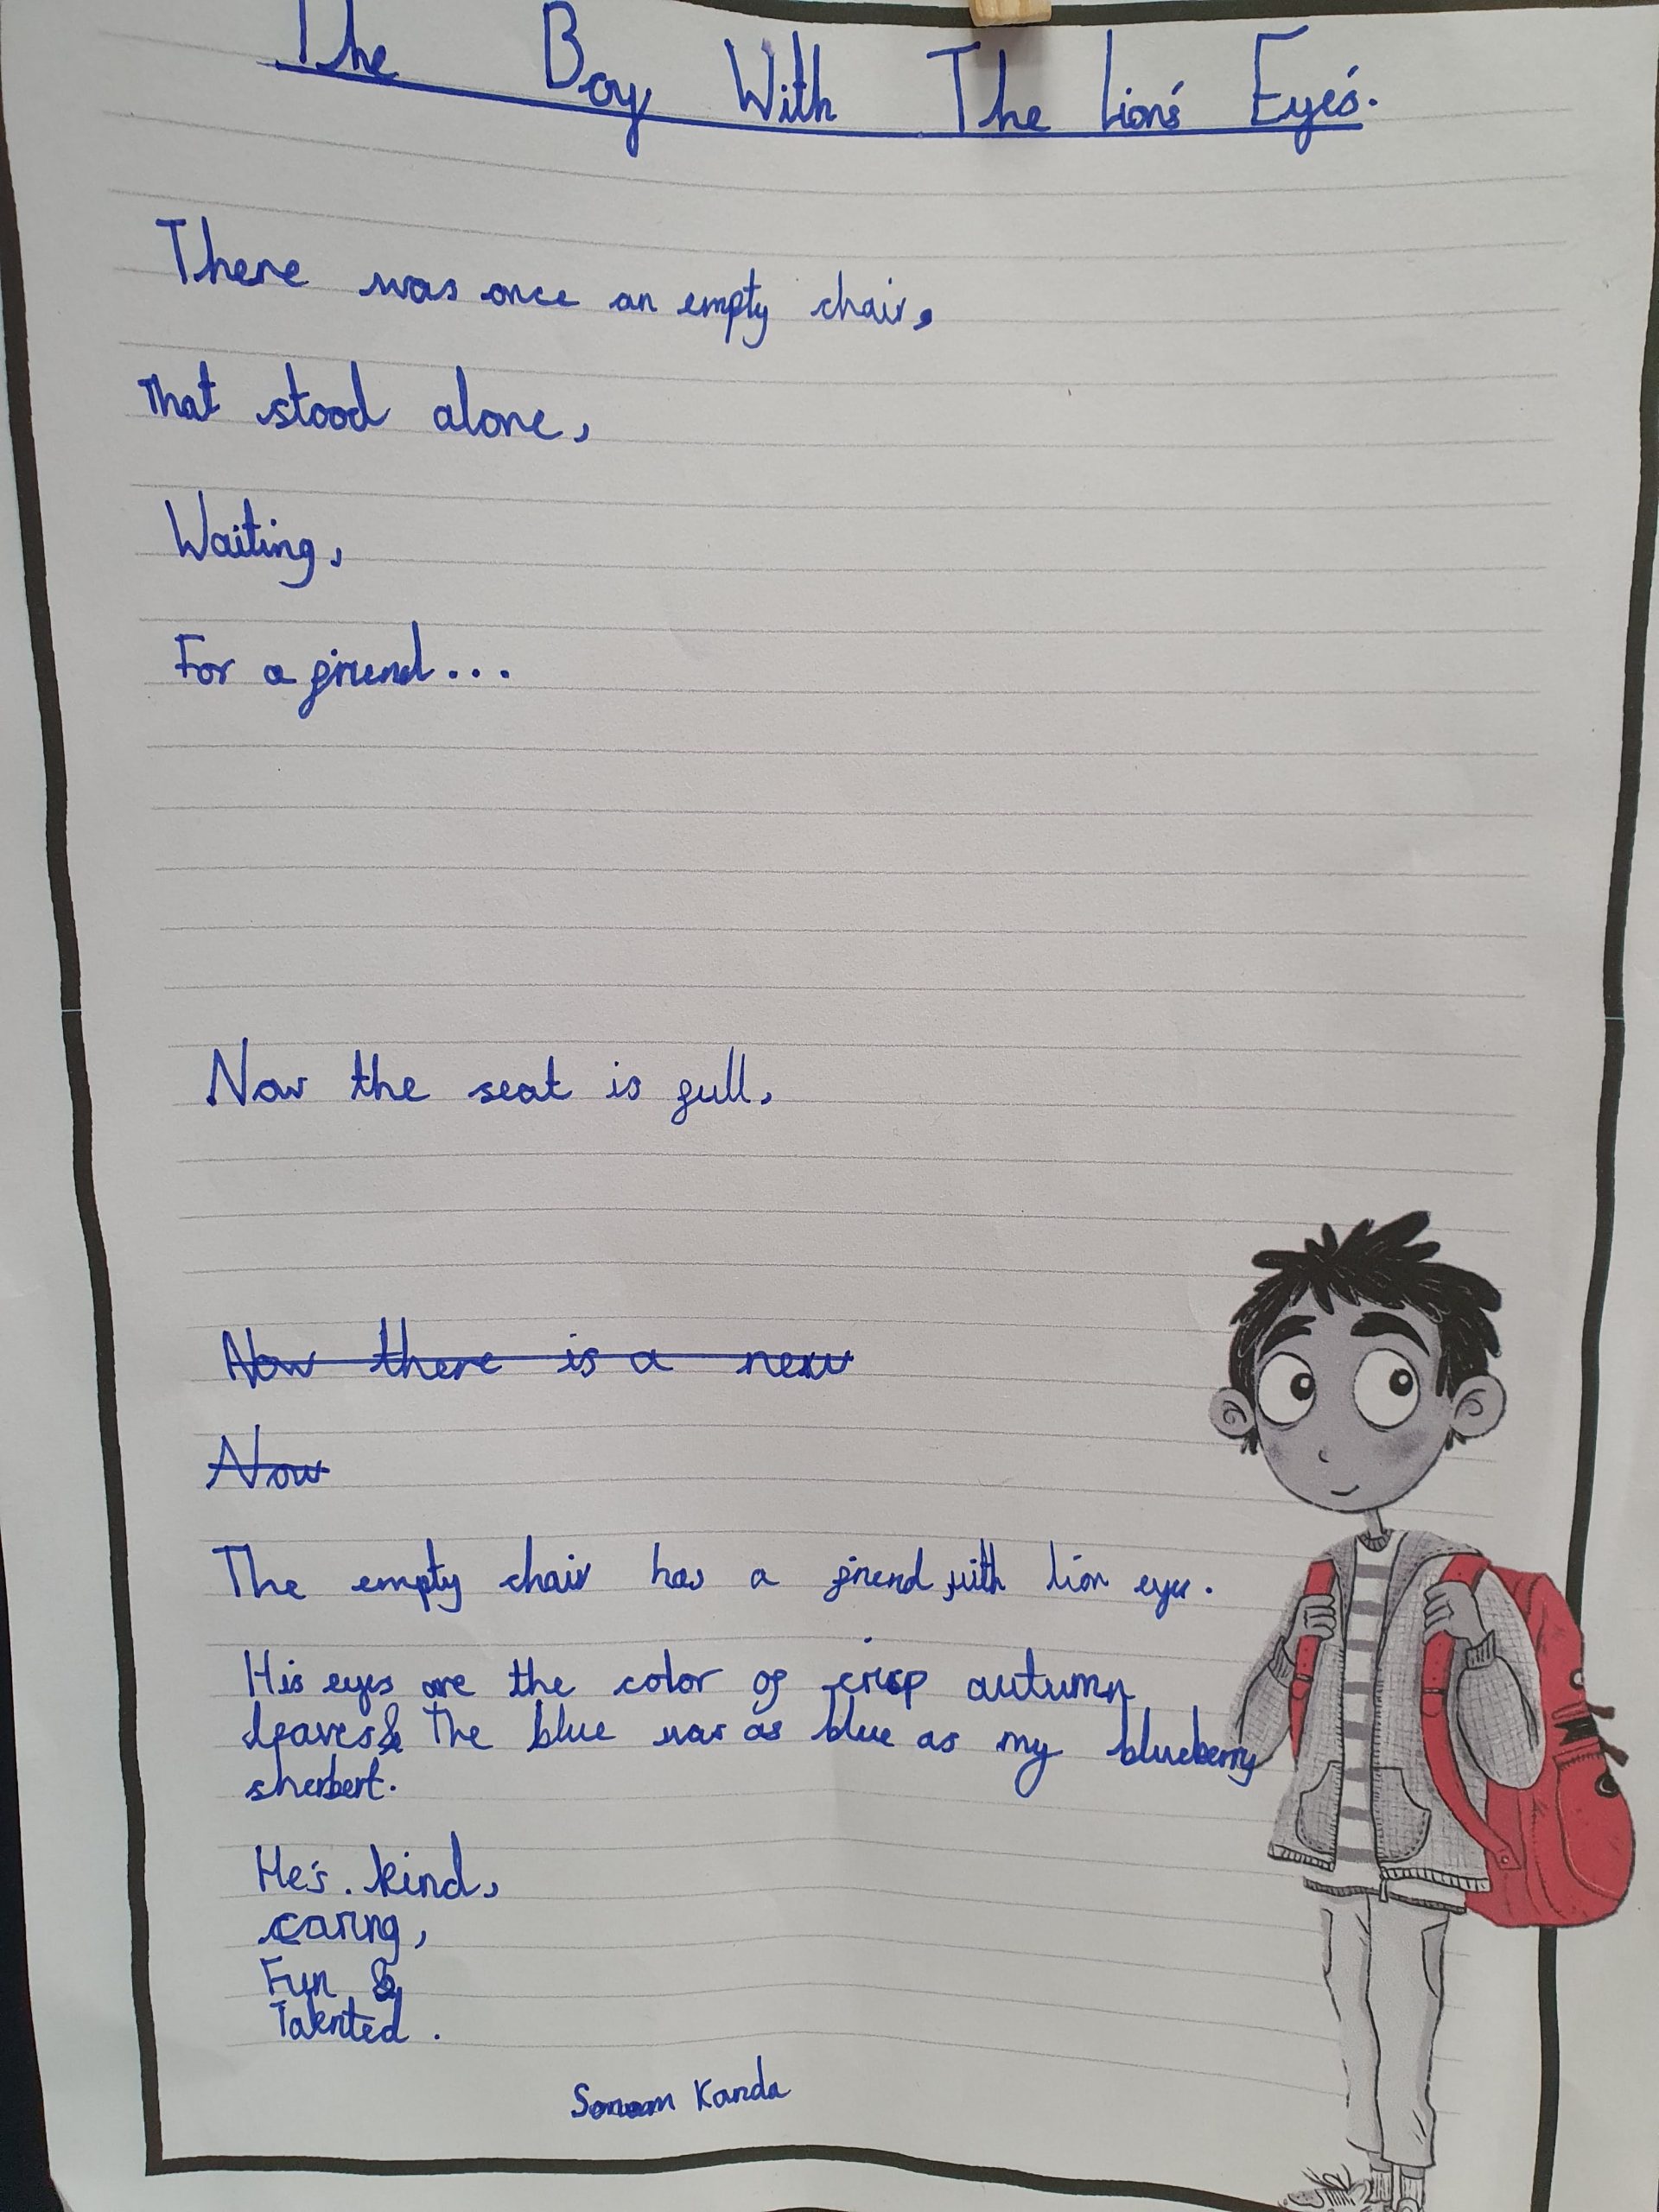 The Boy With The Lion's Eye's.
There was once an empty chair,
That stood alone,
Waiting,
For a friend...
Now the seat is full,
Now there is a new
Now
The empty chair has a friend, with lion eyes.
His eyes are the color of crisp autumn
leaves & The blue was as blue as my blueberry
sherbert.
He's. kind,
caring,
Fun &
Talented.
Sonam Kanda